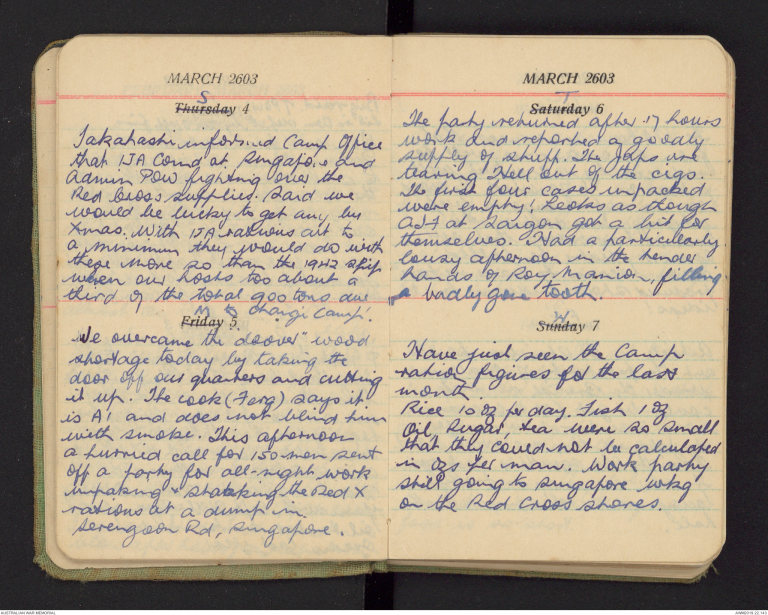 MARCH 2603
S
Thursday 4
Takahashi informed Camp Office
that IJA Comd at Singapore and
Admin POW fighting over the
Red Cross supplies. Said we
would be lucky to get any by
Xmas. With IJA rations cut to
a minimum they would do with
these more so than the 1942 ship
when our hosts took about a
third of the total 900 tons due
to Changi Camp!
M
Friday 5
We overcame the doover" wood
shortage today by taking the
door off our quarters and cutting
it up. The cook (Ferg) says it
is A1 and does not blind him
with smoke. This afternoon
a hurried call for 150 men sent
off a party for all-night work
unpaking + stacking the Red X
rations at a dump in
Serengoon Rd, Singapore.
MARCH 2603
T
Saturday 6
The party returned after 17 hours
work and reported a goodly
supply of stuff. The Japs are
tearing Hell out of the cigs.
The first four cases unpacked
were empty! Looks as though
at Saigon got a bit for
themselves. Had a particularly
lousy afternoon in the tender
hands of Roy Manion, filling
a badly gone tooth.
W
Sunday 7
Have just seen the Camp
ration figures for the last
month.
Rice 10 oz per day. Fish 1 oz
Oil, Sugar, tea were so small
that they could not be calculated
in ozs per man. Work party
still going to Singapore wkg
on the Red Cross stores.
AUSTRALIAN WAR MEMORIAL